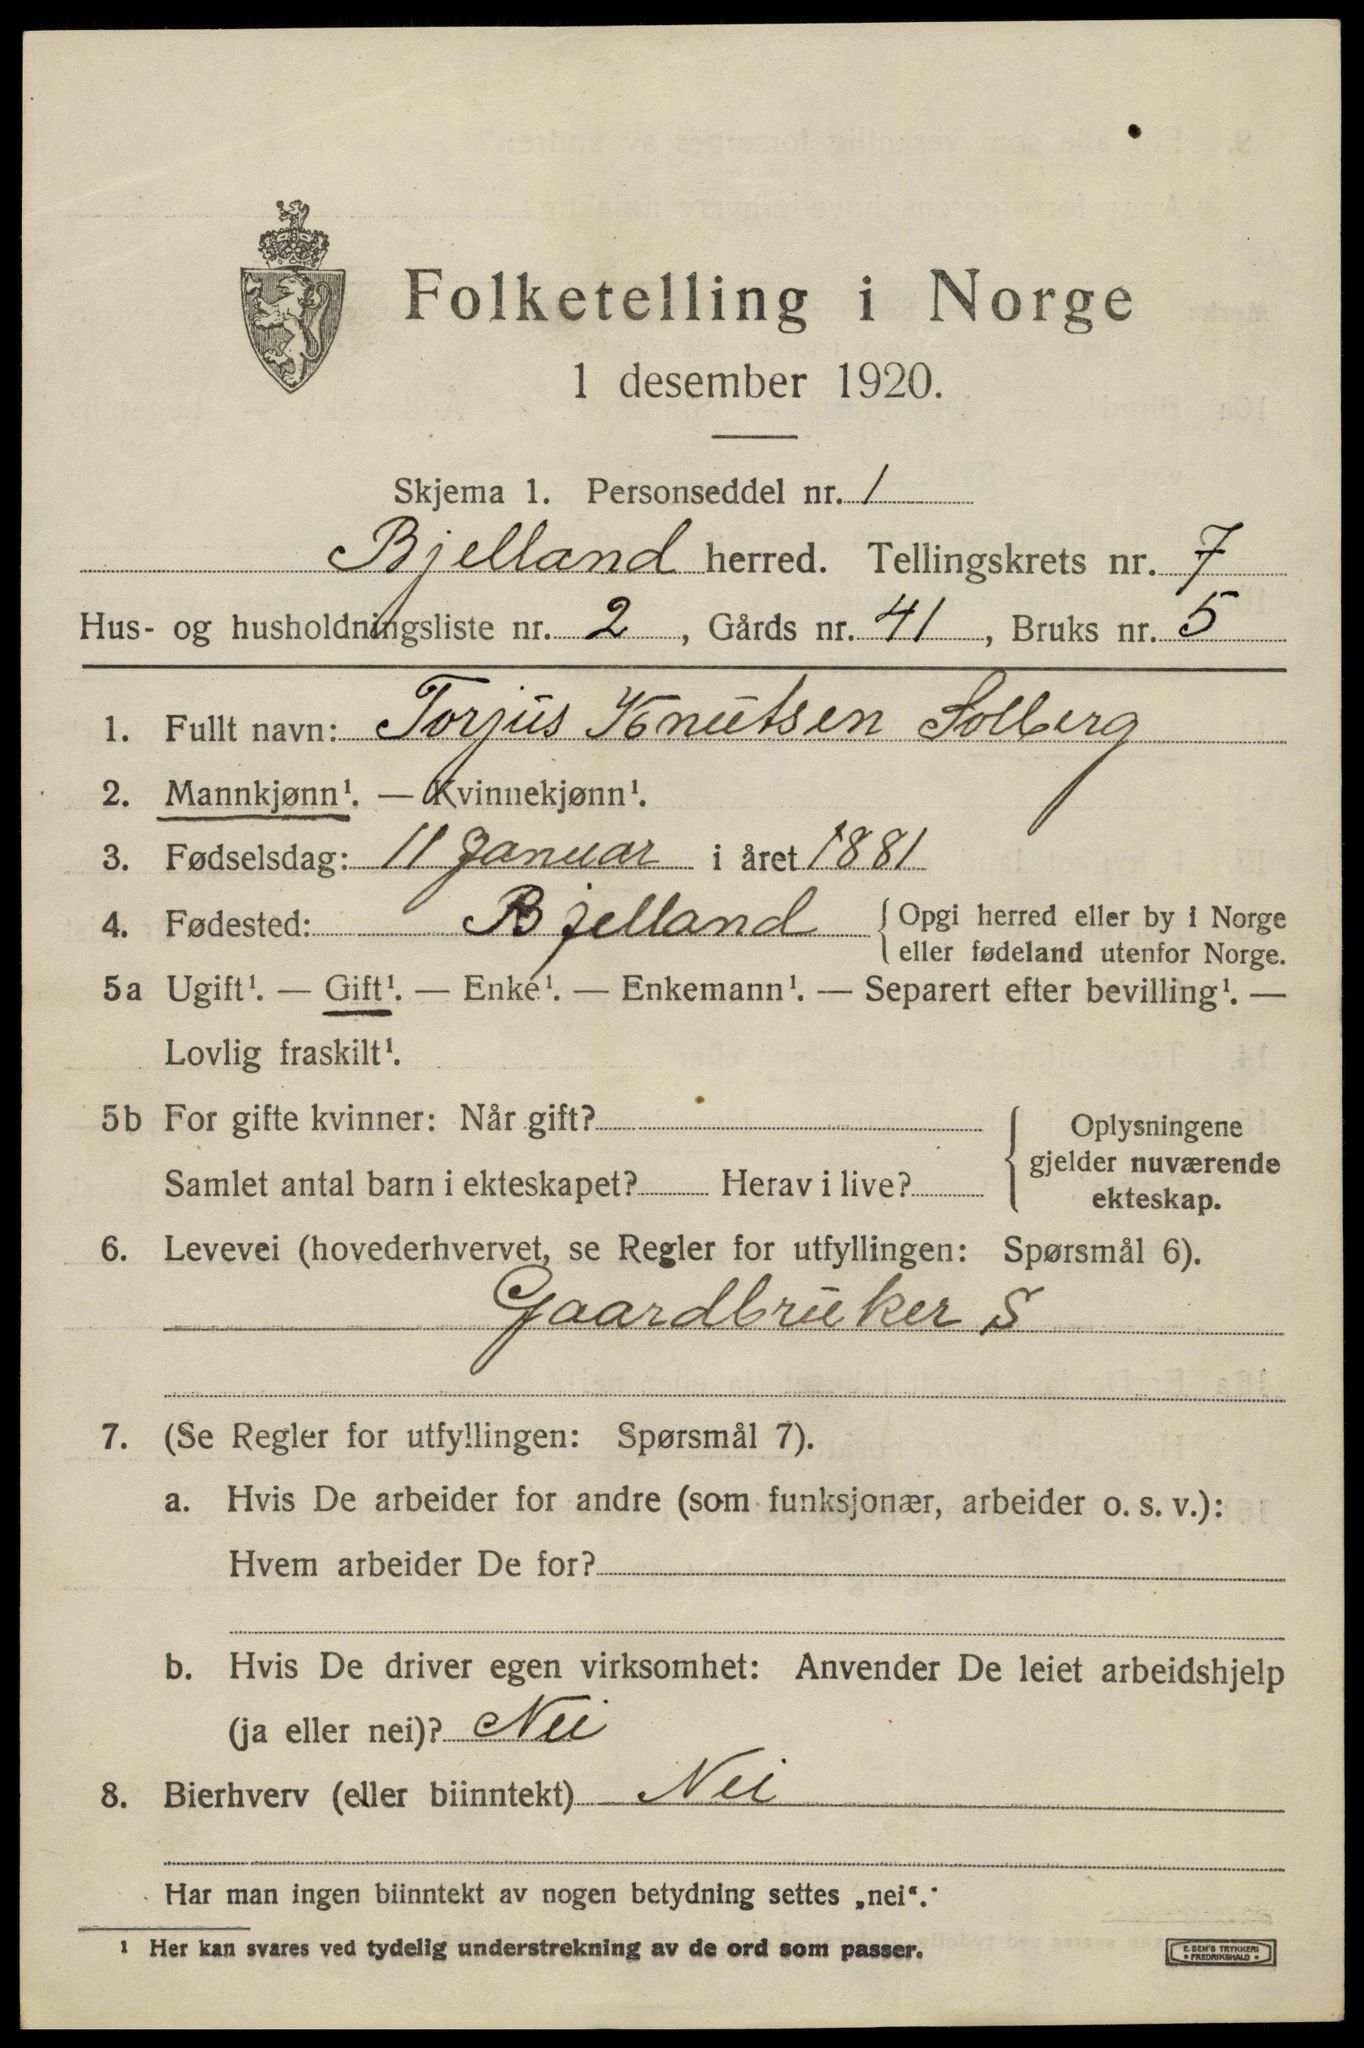 Folketelling i Norge
1 desember 1920.
Skjema 1. Personseddel nr. 1
Bjelland herred. Tellingskrets nr. 7
Hus- og husholdningsliste nr. 2, Gårds nr. 41, Bruks nr. 5
1. Fullt navn: Torjus Knutsen Solberg
2. Mannkjønn¹. — Kvinnekjønn¹.
3. Fødselsdag: 11 Januar i året 1881
4. Fødested: Bjelland {Opgi herred eller by i Norge
eller fødeland utenfor Norge.
5a Ugift¹. — Gift¹. — Enke¹. — Enkemann¹. — Separert efter bevilling¹. —
Lovlig fraskilt¹.
5b For gifte kvinner: Når gift?
Samlet antal barn i ekteskapet? Herav i live?
Oplysningene
gjelder nuværende
ekteskap.
6. Levevei (hovederhvervet, se Regler for utfyllingen: Spørsmål 6).
Gaardbruker S
7. (Se Regler for utfyllingen: Spørsmål 7).
a. Hvis De arbeider for andre (som funksjonær, arbeider o. s. v.):
Hvem arbeider De for?
b. Hvis De driver egen virksomhet: Anvender De leiet arbeidshjelp
(ja eller nei)? Nei
8. Bierhverv (eller biinntekt) Nei
Har man ingen biinntekt av nogen betydning settes „nei“.
¹ Her kan svares ved tydelig understrekning av de ord som passer.
E. SEM'S TRYKKERI
• FREDRIKSHALD •